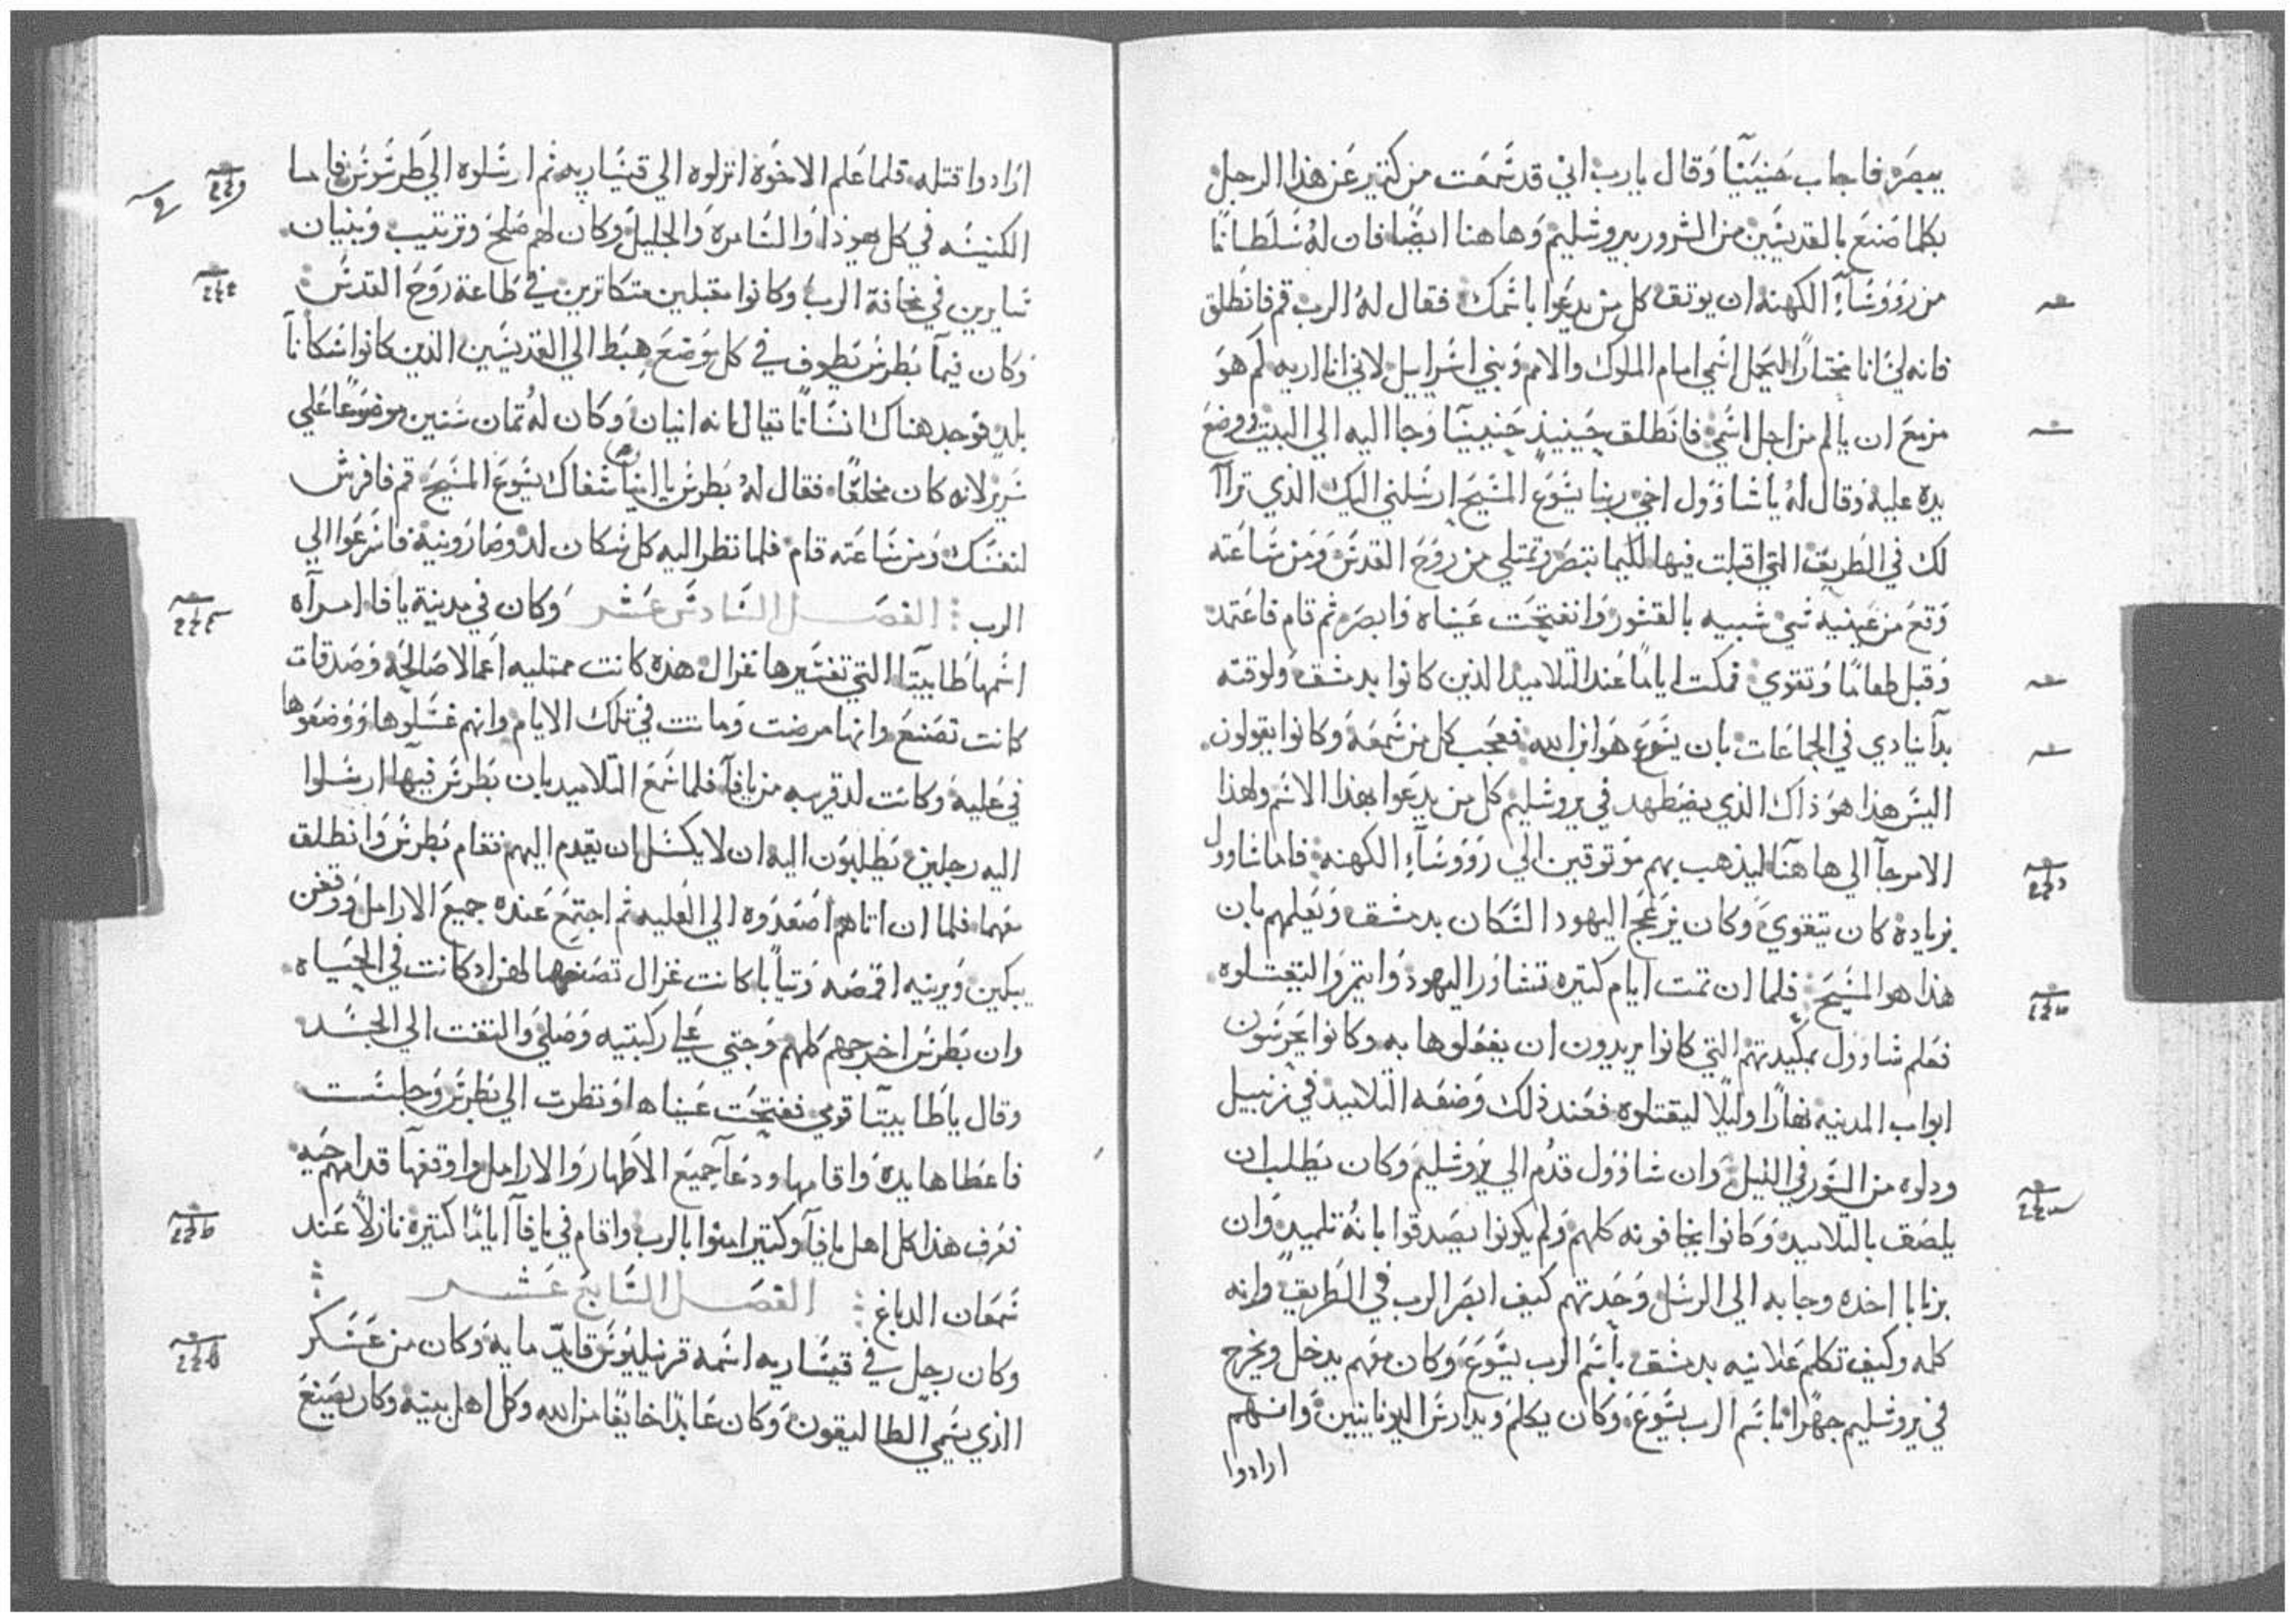 يبصر، فاجاب حنينيا وقال يارب اني قد سمعت من كتير عن هذا الرجل
بكلما صنع بالقديسين من الشرور بيروشليم وهاهنا ايضًا فان لهُ سلطانًا
من رووسآء الكهنه ان يوتق كل من يدعوا باسمك فقال لهُ الرب قم فانطلق
فانه لي انا مختارًا ليحمل اسمي امام الملوك والامم وبني اسراييل لاني انا اريه كم هو
مزمع ان يالم من اجل اسمي فانطلق حينيذٍ حنينيا وجا اليه الي البيت ووضع
يده عليه وقال لهُ يا شاوول اخي ربنا يسوع المسيح ارسلني اليك الذي تراآ
لك في الطريق التي اقبلت فيها لكيما تبصر وتمتلي من روح القدس ومن ساعته
وقع من عينيه شي شبيه بالقشور وانفتحت عيناه وابصر ثم قام فاعتمد
وقبل طعامًا وتقوي فمكت ايامًا عند التلاميد الدين كانوا بدمشق ولوقته
بدآ ينادي في الجماعات بان يسوع هو ابن الله فعجب كل من سمعه وكانوا يقولون
اليس هذا هو ذاك الذي يضطهد في يروشليم كل من يدعوا بهذا الاسم ولهذا
الامر جآ الي هاهنا ليذهب بهم موتوقين الي رووسآء الكهنه فاما شاوول
بزيادة كان يتقوي وكان يزعج اليهود السكان بدمشق ويعلمهم بان
هذا هو المسيح فلما ان تمت ايام كتيره تشاور اليهود وايتمروا ليقتلوه
فعلم شاوول بمكيدتهم التي كانوا يريدون ان يفعلوها به وكانوا يحرسون
ابواب المدينه نهارًا وليلًا ليقتلوه فعند ذلك وضعه التلاميذ في زنبيل
ودلوه من السور في الليل وان شاوول قدم الي يروشليم وكان يطلب ان
يلصق بالتلاميد وكانوا يخافونه كلهم ولم يكونوا يصدقوا بانهُ تلميدٍ وان
برنابا اخده وجابه الي الرسل وحدتهم كيف ابصر الرب في الطريق وانه
كلمه وكيف تكلم علانيه بدمشق باسم الرب يسوع وكان معهم يدخل ويخرج
في يروشليم جهرًا باسم الرب يسوع وكان يكلم ويدارس اليونانيين وانهم
ارادوا
ارادوا قتله فلما علم الاخوة انزلوه الي قيساريه ثم ارسلوه الي طرسوس فاما
الكنيسه في كل يهوذا والسامرة والجليل وكان لهم صلح وترتيب وبنيان
سايرين في مخافة الرب وكانوا مقبلين متكاترين في طاعة روح القدس
وكان فيمآ بطرس يطوف في كل موضع هبط الي القديسين الذين كانوا سكانآ
بلد فوجد هناك انسانًا يقال انه انيان وكان لهُ تمان سنين موضوعًا علي
سرير لانه كان مخلعًا فقال لهُ بطرس يا انيا شفاك يسوع المسيح قم فافرش
لنفسك ومن ساعته قام فلما نظر اليه كل سكان لد وصارونية فاسرعوا الي
الرب الفصل السادس عشر وكان في مدينة يافا امرآه
اسمها طابيتا التي تفسيرها غزال هذه كانت ممتليه اعمالا صالحه وصدقات
كانت تصنع وانها مرضت وماتت في تلك الايام وانهم غسلوها ووضعوها
في عليه وكانت لد قريبه من يافآ فلما سمع التلاميد بان بطرس فيها ارسلوا
اليه رجلين يطلبون اليه ان لا يكسل ان يقدم اليهم فقام بطرس وانطلق
معهما فلما ان اتاهم اصعدوه الي العليه ثم اجتمع عنده جميع الارامل ووقفن
يبكين ويرينه اقمصه وتيابًا كانت غزال تصنعها لهن اد كانت في الحياه
وان بطرس اخرجهم كلهم وجتي علي ركبتيه وصلي والتفت الي الجسد
وقال يا طابيتا قومي ففتحت عيناها ونظرت الي بطرس وجلست
فاعطاها يده واقامها ودعآ جميع الاطهار والارامل واوقفهآ قدامهم حيه
فعرف هذا كل اهل يافآ وكتير امنوا بالرب واقام في يافآ ايامًا كتيرة نازلاً عند
سمعان الدباغ الفصل السابع عشر
وكان رجل في قيساريه اسمه قرنيليوس قايد مايه وكان من عسكر
الذي يسمي الطاليقون وكان عابدًا خايفًا من الله وكل اهل بيته وكان يصنع